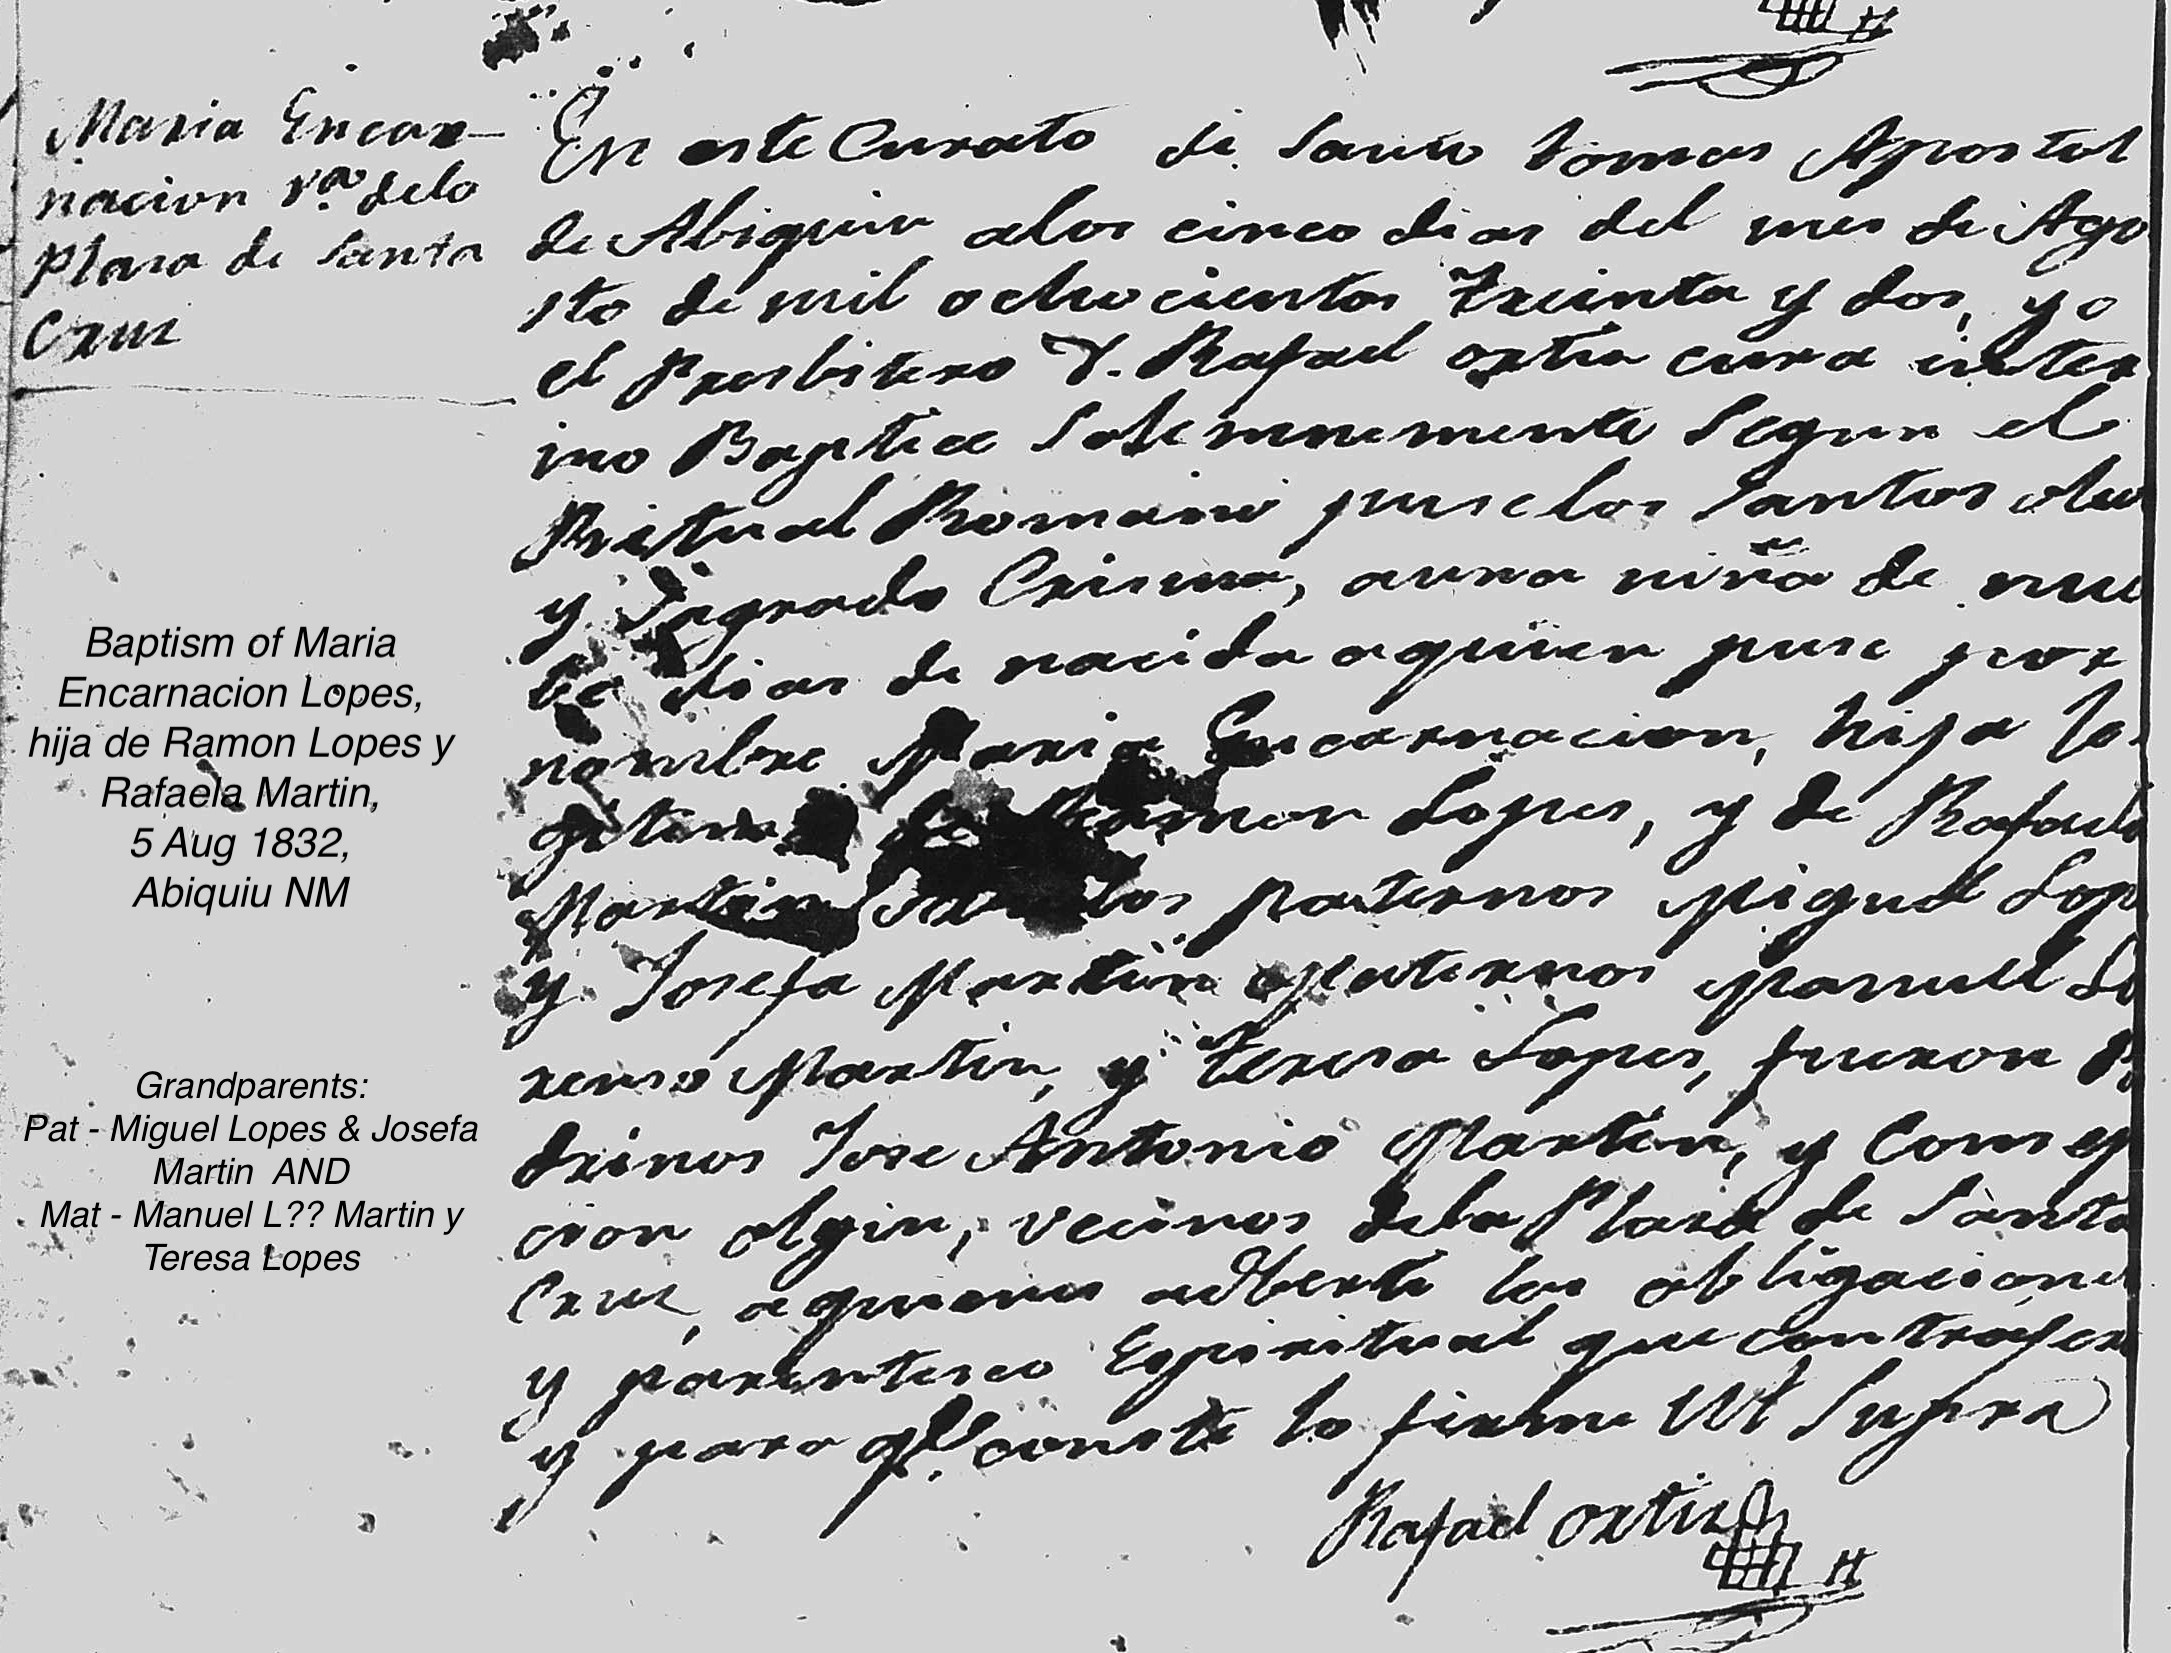 Maria Encar-
nacion va. dela
Plasa de Santa
Crus
En este Curato de Santo Tomas Apostol
de Abiquiu alos cinco dias del mes de Ago
sto de mil ochocientos treinta y dos, yo
el Presbitero D. Rafael Ortis cura inter
ino Baptice Solemnemente Segun el
Ritual Romano puse los Santos oleo
y Sagrado Crisma, auna niña de nue
be dias de nacida aquien puse por
nombre Maria Encarnacion, hija le
gitima de Ramon Lopes, y de Rafaela
Martin Abuelos paternos Miguel Lop
y Josefa Martin Maternos Manuel Lo
renso Martin, y teresa Lopes, fueron P
drinos Jose Antonio Martin, y Consep
cion olgin, vecinos dela Plasa de Santa
Crus, aquienes adberti las obligaciones
y parentesco Espiritual que contrajero
y para qe. conste lo firme Ut Supra
Rafael Ortis
Baptism of Maria
Encarnacion Lopes,
hija de Ramon Lopes y
Rafaela Martin,
5 Aug 1832,
Abiquiu NM
Grandparents:
Pat - Miguel Lopes & Josefa
Martin AND
Mat - Manuel L?? Martin y
Teresa Lopes